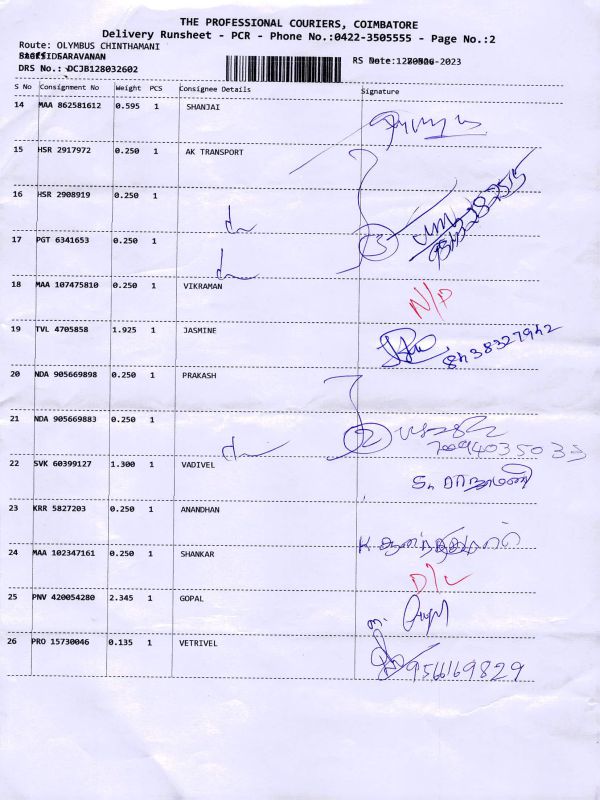 THE PROFESSIONAL COURIERS, COIMBATORE
Delivery Runsheet - PCR - Phone No.:0422-3505555 - Page No.:2
Route: OLYMBUS CHINTHAMANI
SARAVANAN
DRS No.: DCJB128032602
S No Consignment No Weight PCS Consignee Details Signature
14 MAA 862581612 0.595 1 SHANJAI
15 HSR 2917972 0.250 1 AK TRANSPORT
16 HSR 2908919 0.250 1
17 PGT 6341653 0.250 1
18 MAA 107475810 0.250 1 VIKRAMAN N/P
19 TVL 4705858 1.925 1 JASMINE 8438327942
20 NDA 905669898 0.250 1 PRAKASH
21 NDA 905669883 0.250 1 2
22 SVK 60399127 1.300 1 VADIVEL
23 KRR 5827203 0.250 1 ANANDHAN
24 MAA 102347161 0.250 1 SHANKAR D/L
25 PNV 420054280 2.345 1 GOPAL
26 PRO 15730046 0.135 1 VETRIVEL 9566169829